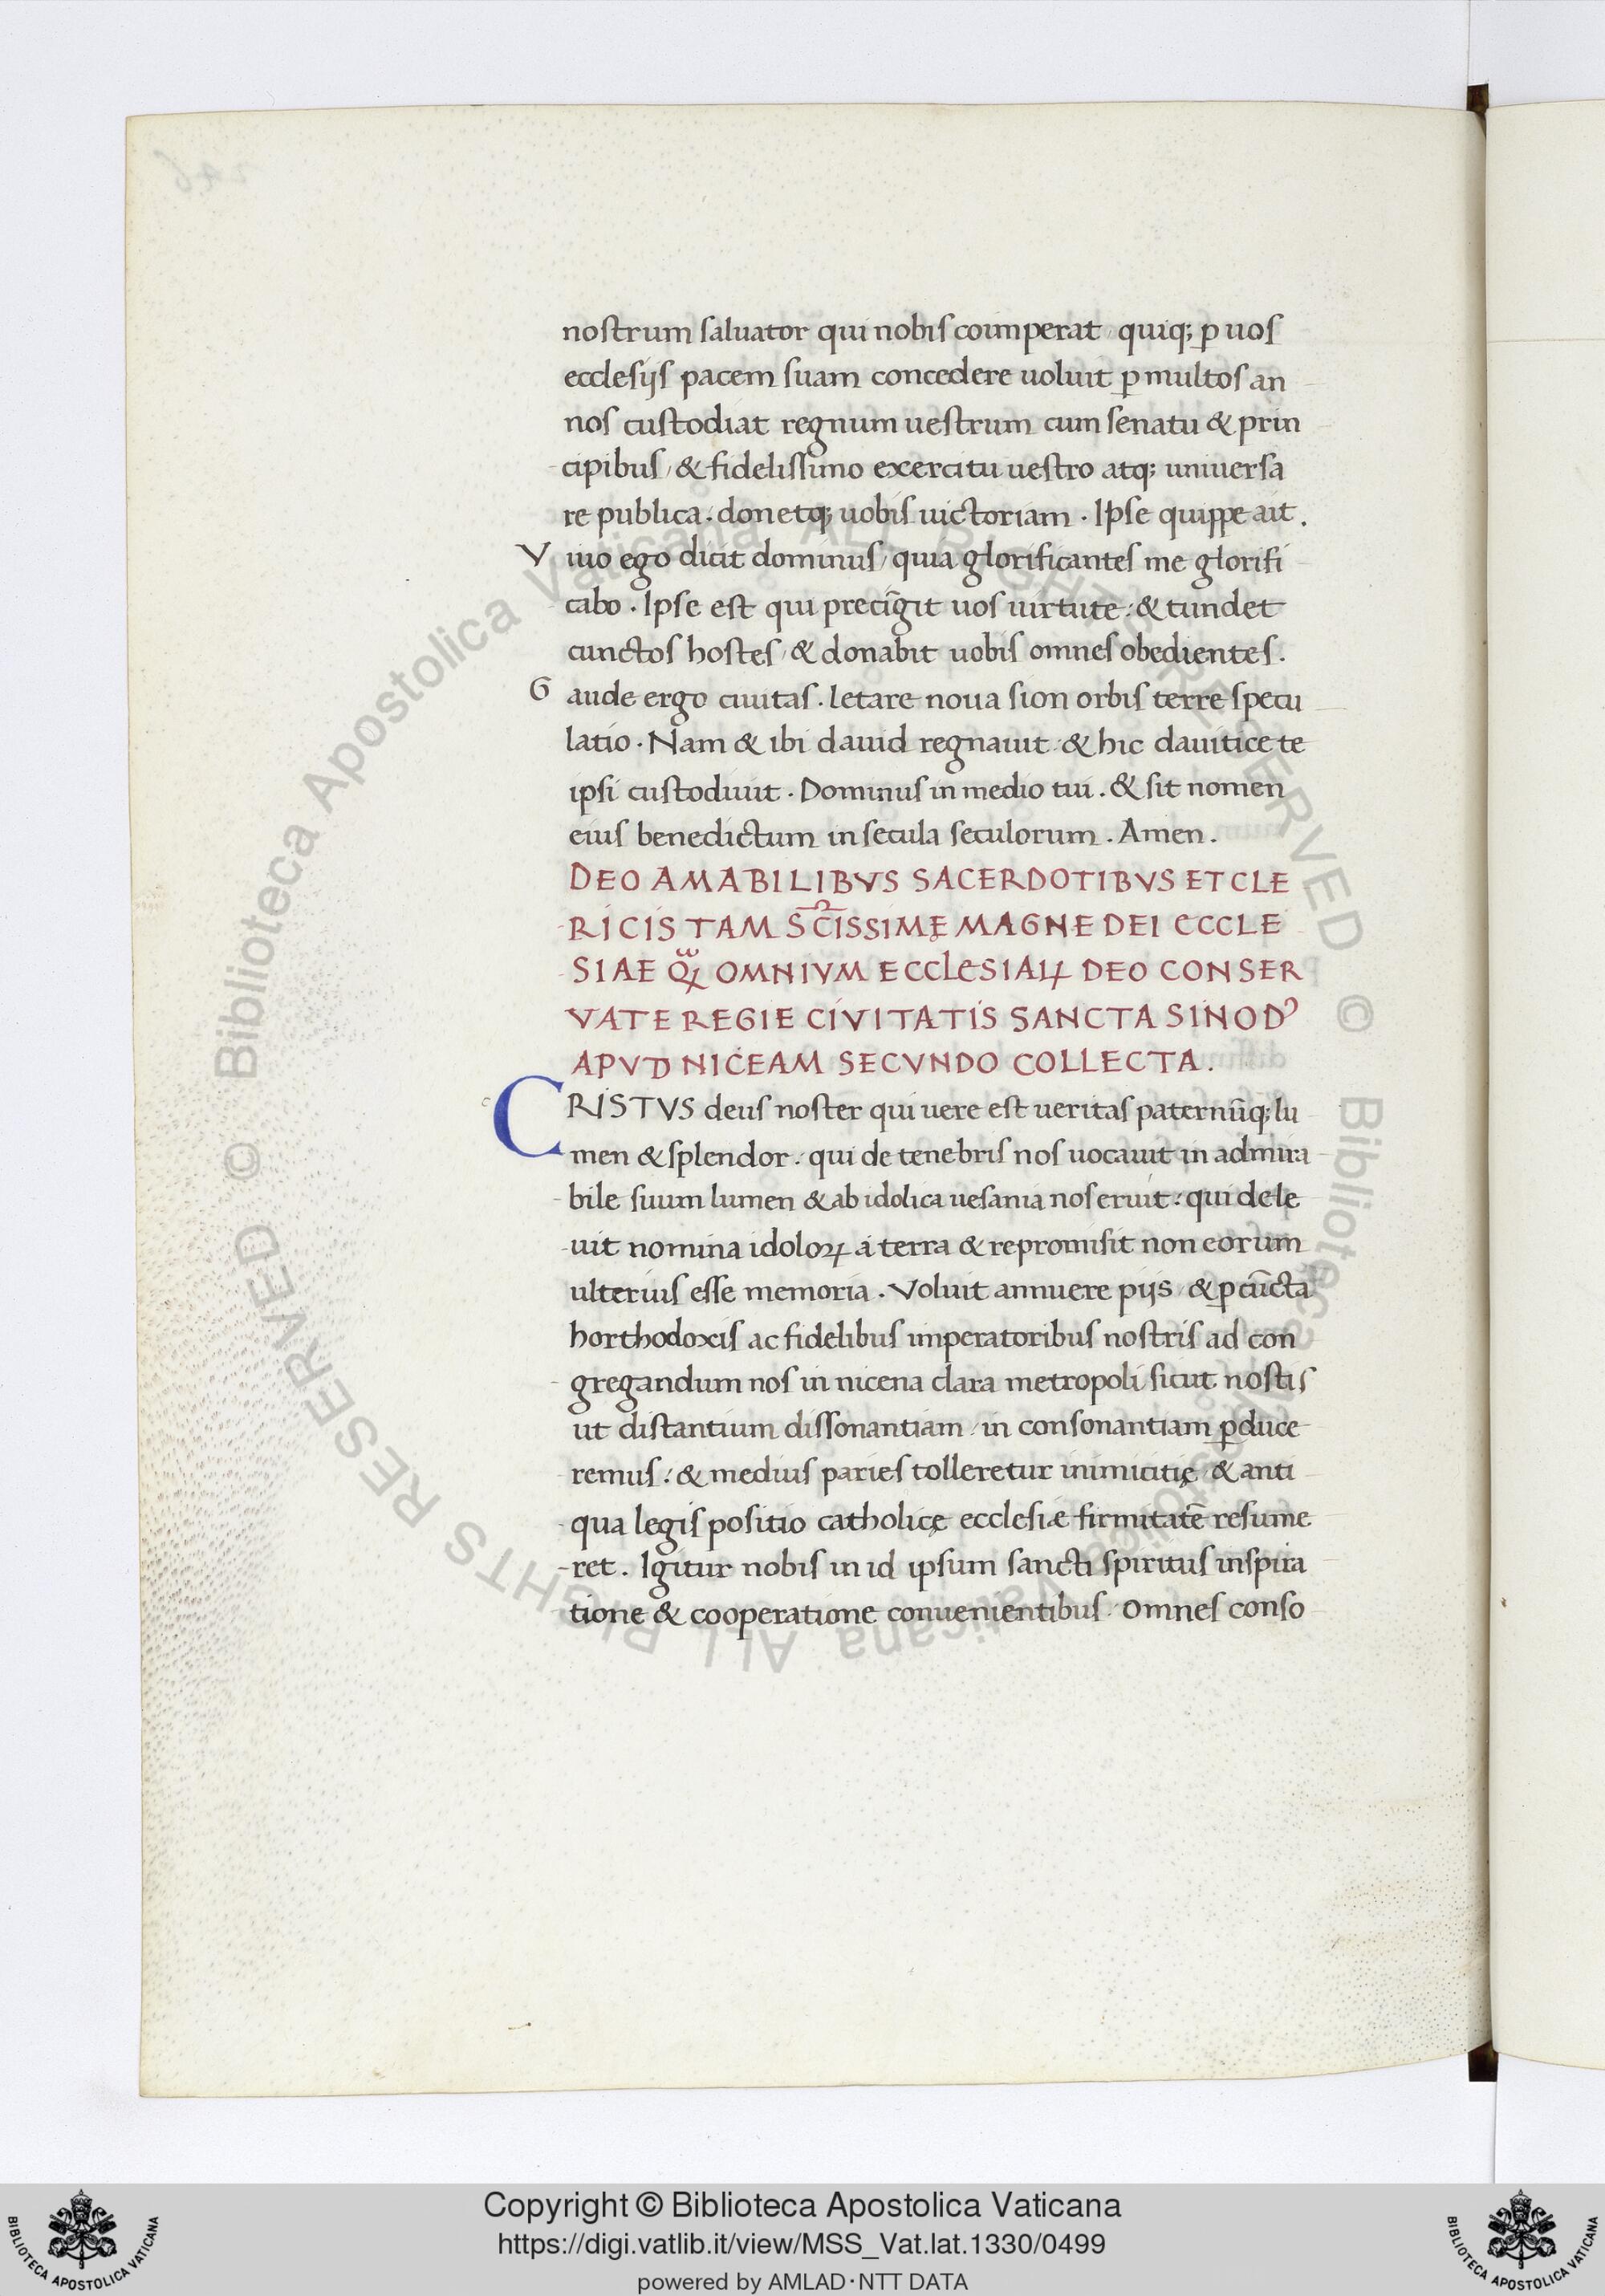 nostrum saluator qui nobis coimperat, quiq; ꝑ uos
ecclesijs pacem suam concedere uoluit ꝑ multos an
nos custodiat regnum uestrum cum senatu & prin
cipibus, & fidelissimo exercitu uestro atq; uniuersa
re publica. donetq; uobis uictoriam. Ipse quippe ait.
Viuo ego dicit dominus, quia glorificantes me glorifi
cabo. Ipse est qui precīgit uos uirtute: & tundet
cunctos hostes, & donabit uobis omnes obedientes.
Gaude ergo ciuitas. letare noua sion orbis terre specu
latio. Nam & ibi dauid regnauit, & hic dauitice te
ipsi custodiuit. Dominus in medio tui. & sit nomen
eius benedictum in secula seculorum. Amen.
DEO AMABILIBVS SACERDOTIBVS ET CLE
RICIS TAM SC̄ISSIMĘ MAGNE DEI ECCLE
SIAE Q̃ OMNIVM ECCLESIAꝜ DEO CONSER
VATE REGIE CIVITATIS SANCTA SINODꝰ
APVD NICEAM SECVNDO COLLECTA.
CRISTVS deus noster qui uere est ueritas paternūq; lu
men & splendor: qui de tenebris nos uocauit in admira
bile suum lumen & ab idolica uesania nos eruit: qui dele
uit nomina idoloꝝ a terra & repromisit non eorum
ulterius esse memoria. Voluit annuere pijs, & ꝑ cūcta
horthodoxis ac fidelibus imperatoribus nostris ad con
gregandum nos in nicena clara metropoli sicut nostis
ut distantium dissonantiam, in consonantiam ꝑduce
remus: & medius paries tolleretur inimicitię, & anti
qua legis positio catholicę ecclesiæ firmitatē resume
ret. Igitur nobis in id ipsum sancti spiritus inspira
tione & cooperatione conuenientibus, omnes conso
Copyright © Biblioteca Apostolica Vaticana
https://digi.vatlib.it/view/MSS_Vat.lat.1330/0499
powered by AMLAD·NTT DATA
BIBLIOTECA APOSTOLICA VATICANA
BIBLIOTECA APOSTOLICA VATICANA
© Biblioteca Apostolica Vaticana ALL RIGHTS RESERVED
© Biblioteca Apostolica Vaticana ALL RIGHTS RESERVED